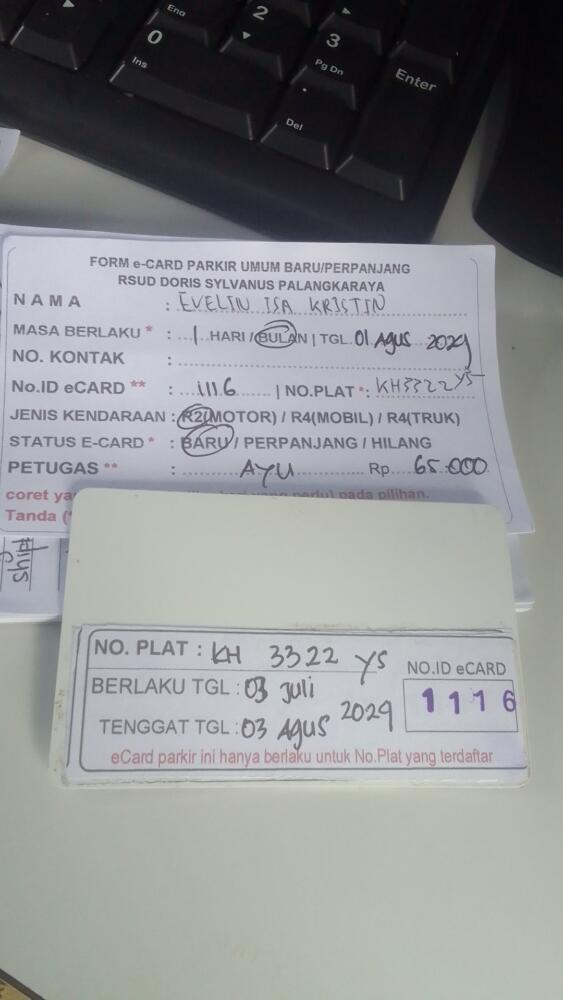 End
2
0
Ins
3
Pg Dn
Enter
.
Del
FORM e-CARD PARKIR UMUM BARU/PERPANJANG
RSUD DORIS SYLVANUS PALANGKARAYA
NAMA : EVELIN ISA KRISTIN
MASA BERLAKU * : 1 HARI / BULAN | TGL 01 Agus 2024
NO. KONTAK :
No.ID eCARD ** : 1116 | NO.PLAT *: KH3322YS
JENIS KENDARAAN : R2(MOTOR) / R4(MOBIL) / R4(TRUK)
STATUS E-CARD * : BARU / PERPANJANG / HILANG
PETUGAS ** : AYU Rp 65.000
coret pada pilihan.
Tanda (*
NO. PLAT : KH 3322 YS
NO.ID eCARD
BERLAKU TGL : 03 Juli
1116
TENGGAT TGL : 03 Agus 2024
eCard parkir ini hanya berlaku untuk No.Plat yang terdaftar